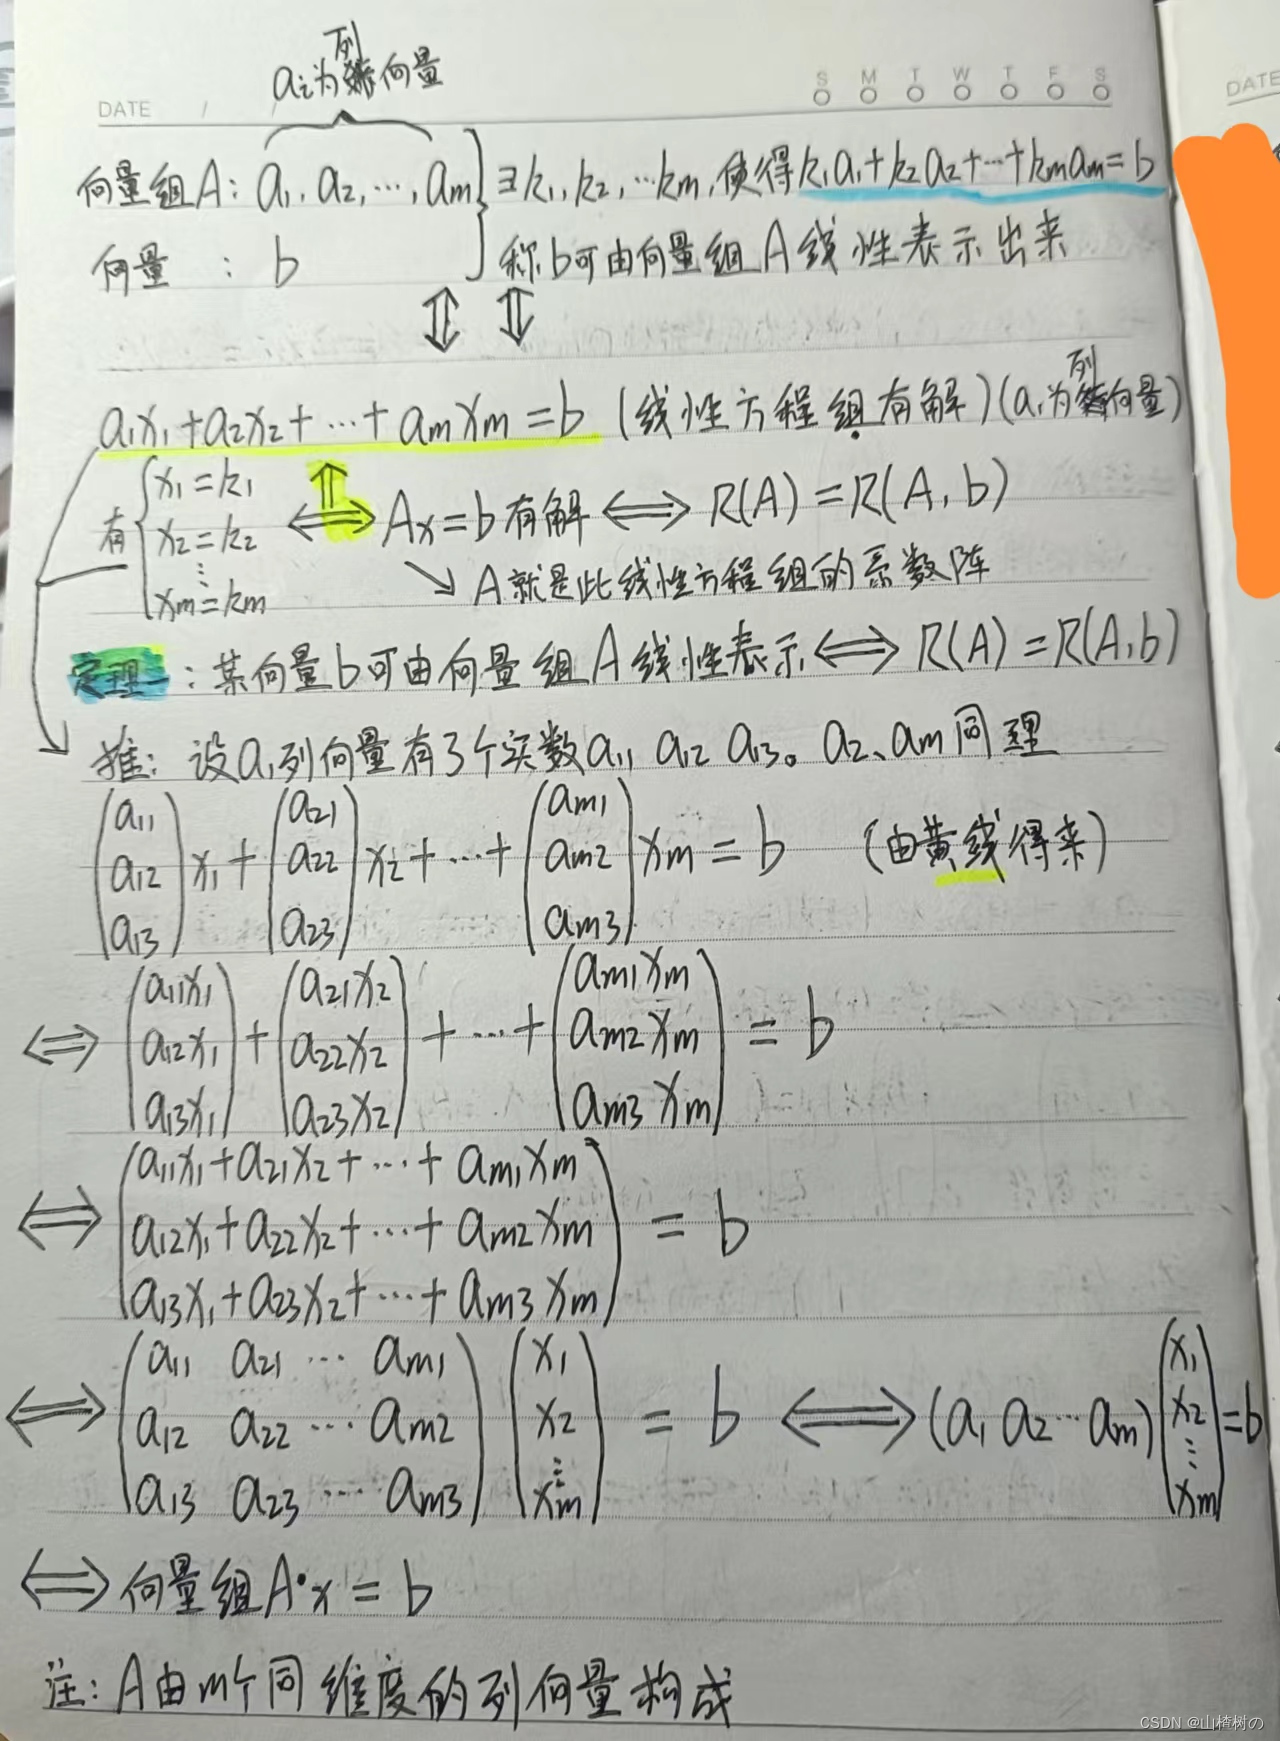 a_i为列向量
DATE / /
S M T W T F S
DATE
向量组A: a₁, a₂, ⋯, aₘ } ∃ k₁, k₂, ⋯kₘ, 使得k₁a₁+k₂a₂+⋯+kₘaₘ=b
向量 : b 称b可由向量组A线性表示出来
⇕ ⇕
a₁x₁+a₂x₂+⋯+aₘxₘ=b (线性方程组有解)(a₁为列向量)
有 { x₁=k₁ x₂=k₂ ⋮ xₘ=kₘ ⇔ ⇑ Ax=b有解 ⇔ R(A)=R(A,b)
↘ A就是此线性方程组的系数阵
定理一: 某向量b可由向量组A线性表示 ⇔ R(A)=R(A,b)
推: 设a₁列向量有3个实数a₁₁ a₁₂ a₁₃。a₂、aₘ同理
(a₁₁ a₁₂ a₁₃)x₁+(a₂₁ a₂₂ a₂₃)x₂+⋯+(aₘ₁ aₘ₂ aₘ₃)xₘ=b (由黄线得来)
⇔ (a₁₁x₁ a₁₂x₁ a₁₃x₁)+(a₂₁x₂ a₂₂x₂ a₂₃x₂)+⋯+(aₘ₁xₘ aₘ₂xₘ aₘ₃xₘ)=b
a₁₁x₁+a₂₁x₂+⋯+aₘ₁xₘ
⇔ a₁₂x₁+a₂₂x₂+⋯+aₘ₂xₘ = b
a₁₃x₁+a₂₃x₂+⋯+aₘ₃xₘ
a₁₁ a₂₁ ⋯ aₘ₁ x₁ x₁
⇔ a₁₂ a₂₂ ⋯ aₘ₂ x₂ = b ⇔ (a₁ a₂⋯aₘ) x₂ =b
a₁₃ a₂₃ ⋯ aₘ₃ ⋮ xₘ ⋮ xₘ
⇔ 向量组A·x=b
注: A由m个同维度的列向量构成
CSDN @山楂树の